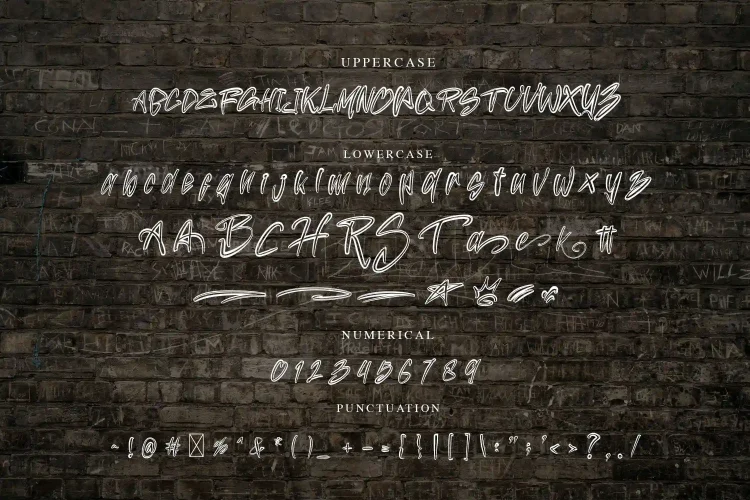 UPPERCASE
ABCDEFGHIJKLMNOPQRSTUVWXYZ
LOWERCASE
abcdefghijklmnopqrstuvwxyz
A A B C H R S T a e e k tt
NUMERICAL
0123456789
PUNCTUATION
~ ! @ # % ^ & * ( ) _ + - = { } | [ ] \ : " ; ' < > ? , . /